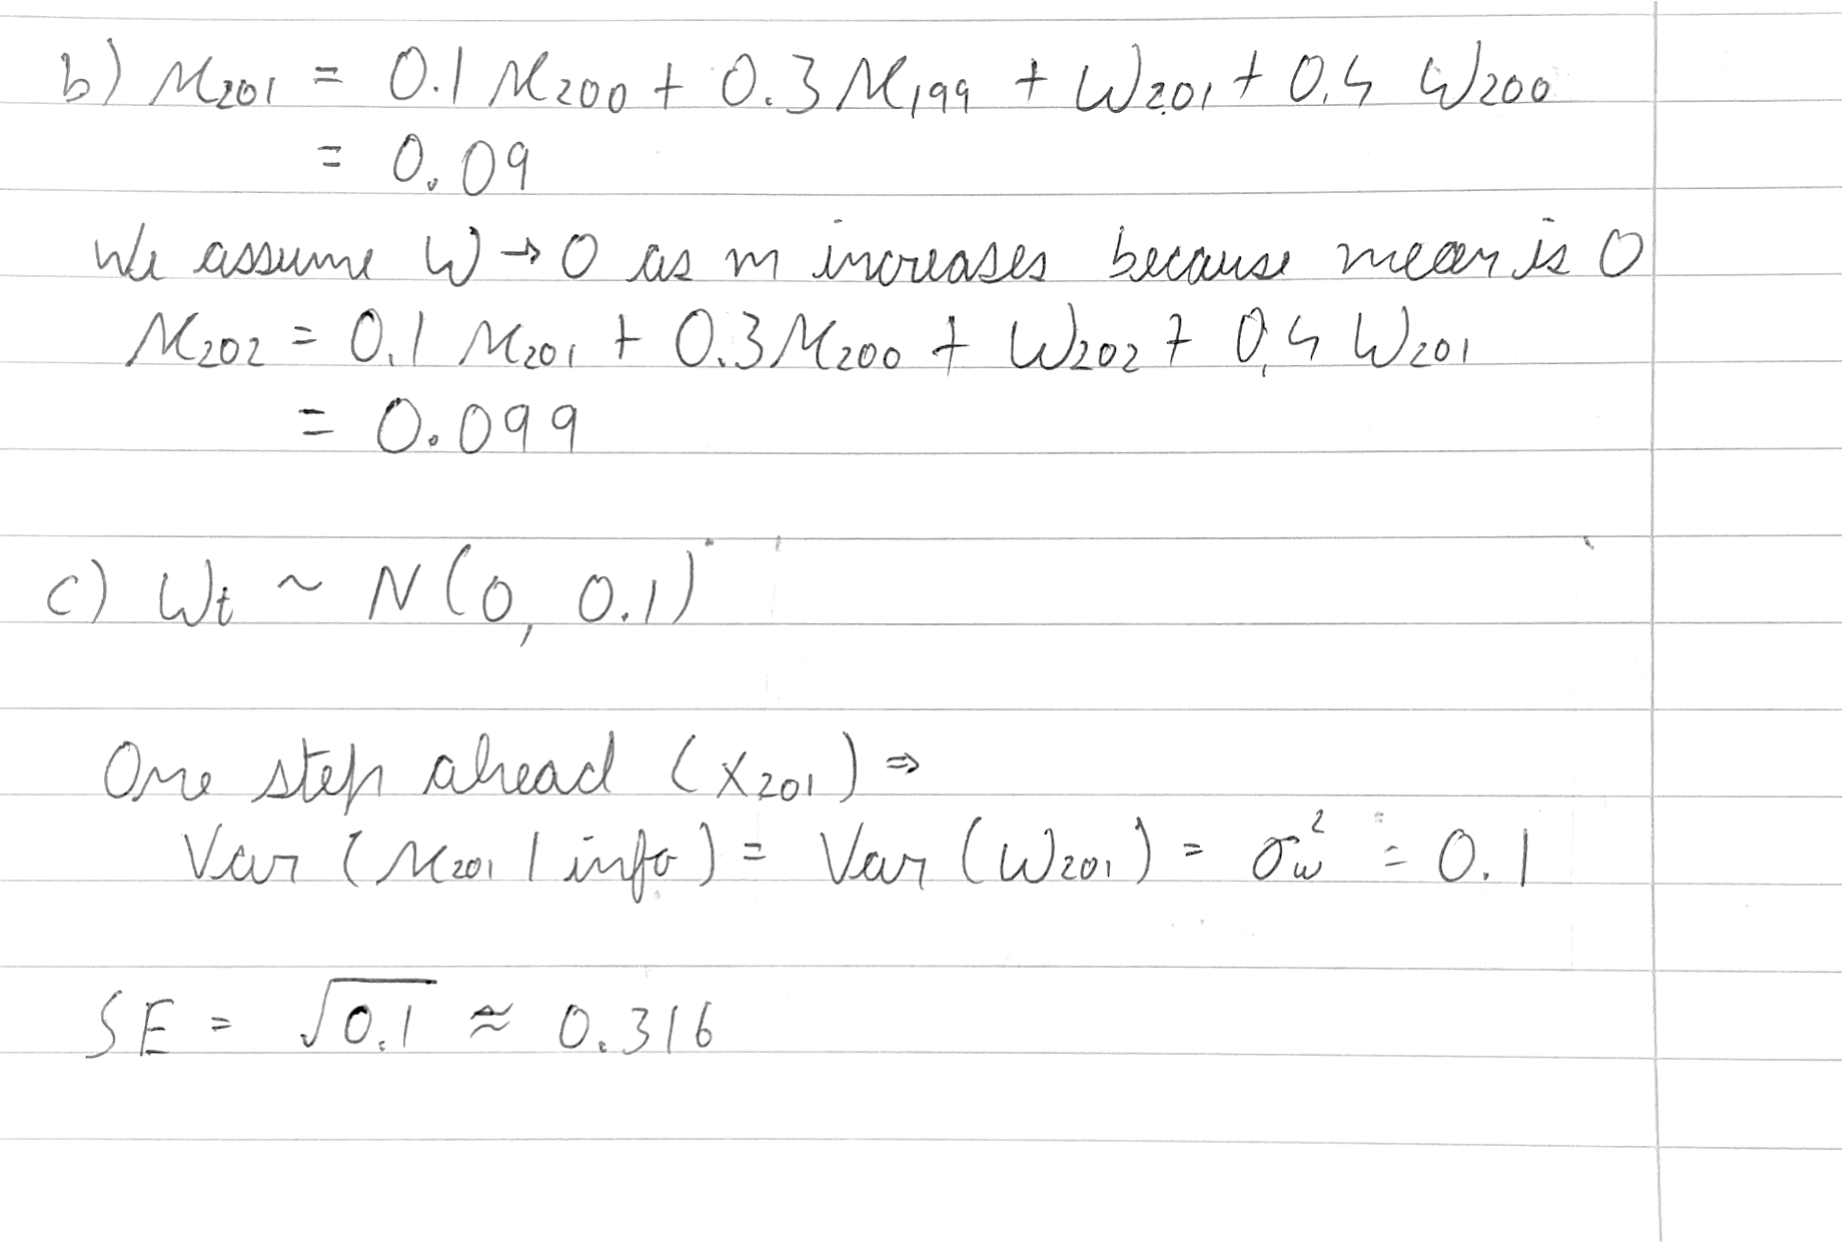 b) x₂₀₁ = 0.1 x₂₀₀ + 0.3 x₁₉₉ + w₂₀₁ + 0.5 w₂₀₀
= 0.09
We assume w → 0 as m increases because mean is 0
x₂₀₂ = 0.1 x₂₀₁ + 0.3 x₂₀₀ + w₂₀₂ + 0.5 w₂₀₁
= 0.099
c) wₜ ~ N(0, 0.1)
One step ahead (x₂₀₁) ⇒
Var (x₂₀₁ | info) = Var (w₂₀₁) = σ_w² = 0.1
SE = √0.1 ≈ 0.316